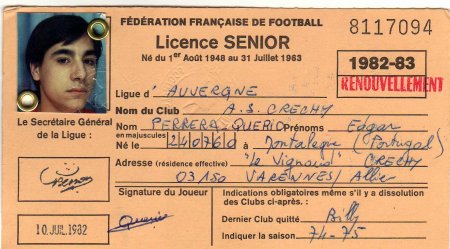 FÉDÉRATION FRANÇAISE DE FOOTBALL
8117094
Licence SENIOR
Né du 1er Août 1948 au 31 Juillet 1963
1982-83
RENOUVELLEMENT
Ligue d' AUVERGNE
Nom du Club A.S. CRECHY
Le Secrétaire Général
de la Ligue :
Nom FERRERA QUERIO Prénoms Edgar
en majuscules
Né le 240760 à Montalegre (Portugal)
Adresse (résidence effective) "le Vignaud" CRECHY
03150 VARENNES/Allier
Signature du Joueur
Indications obligatoires même s'il y a dissolution
des Clubs ci-après :
10 JUIL 1982
Dernier Club quitté. Billy
Indiquer la saison 74-75